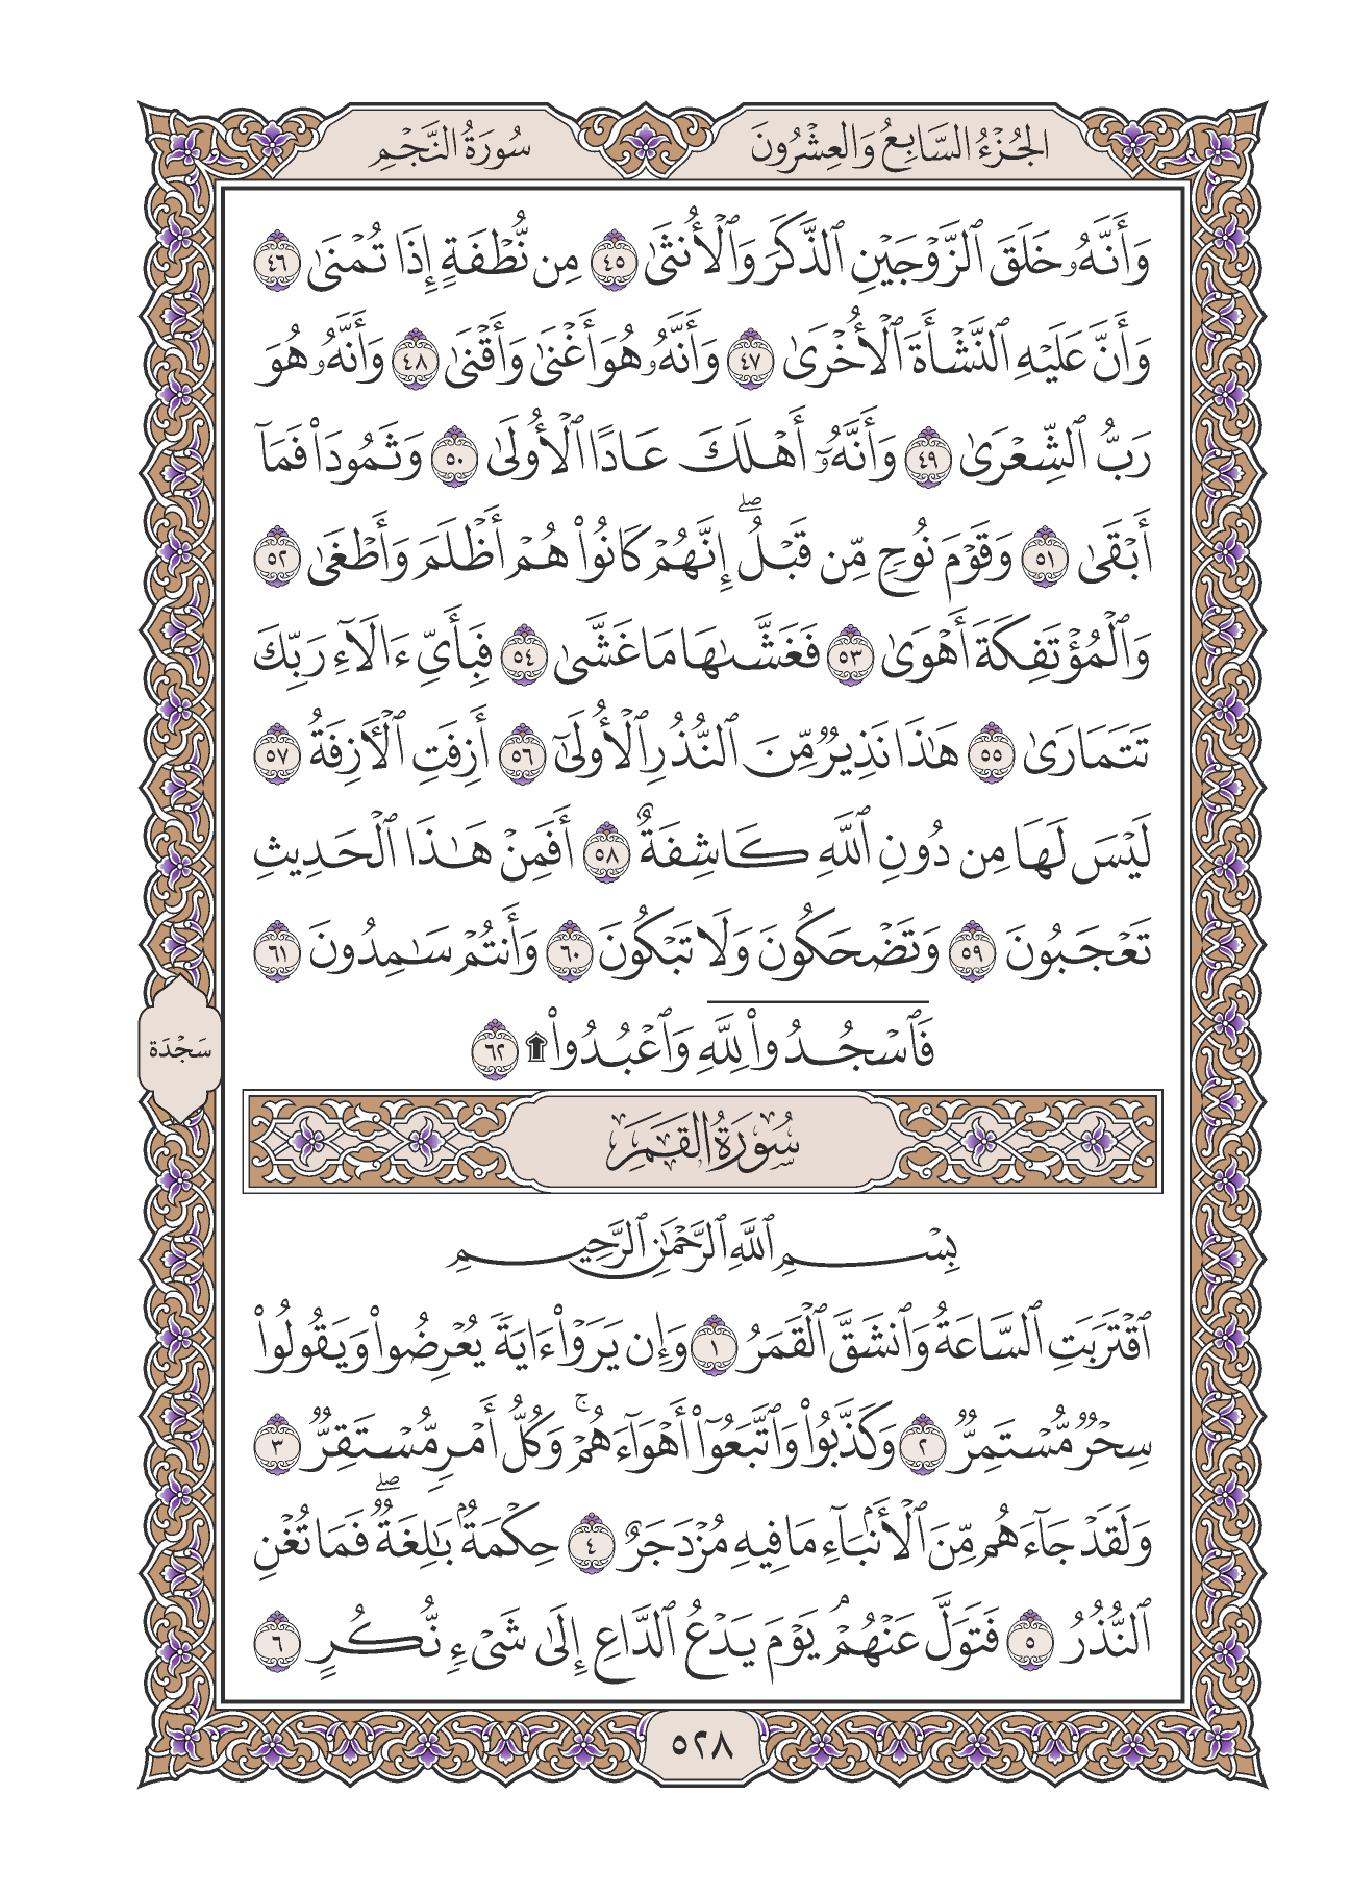 الجُزْءُ السَّابِعُ وَالعِشْرُونَ
سُورَةُ النَّجْمِ
وَأَنَّهُۥ خَلَقَ ٱلزَّوْجَيْنِ ٱلذَّكَرَ وَٱلْأُنثَىٰ ٤٥ مِن نُّطْفَةٍ إِذَا تُمْنَىٰ ٤٦
وَأَنَّ عَلَيْهِ ٱلنَّشْأَةَ ٱلْأُخْرَىٰ ٤٧ وَأَنَّهُۥ هُوَ أَغْنَىٰ وَأَقْنَىٰ ٤٨ وَأَنَّهُۥ هُوَ
رَبُّ ٱلشِّعْرَىٰ ٤٩ وَأَنَّهُۥٓ أَهْلَكَ عَادًا ٱلْأُولَىٰ ٥٠ وَثَمُودَا۟ فَمَآ
أَبْقَىٰ ٥١ وَقَوْمَ نُوحٍ مِّن قَبْلُ ۖ إِنَّهُمْ كَانُوا۟ هُمْ أَظْلَمَ وَأَطْغَىٰ ٥٢
وَٱلْمُؤْتَفِكَةَ أَهْوَىٰ ٥٣ فَغَشَّىٰهَا مَا غَشَّىٰ ٥٤ فَبِأَىِّ ءَالَآءِ رَبِّكَ
تَتَمَارَىٰ ٥٥ هَـٰذَا نَذِيرٌ مِّنَ ٱلنُّذُرِ ٱلْأُولَىٰٓ ٥٦ أَزِفَتِ ٱلْـَٔازِفَةُ ٥٧
لَيْسَ لَهَا مِن دُونِ ٱللَّهِ كَاشِفَةٌ ٥٨ أَفَمِنْ هَـٰذَا ٱلْحَدِيثِ
تَعْجَبُونَ ٥٩ وَتَضْحَكُونَ وَلَا تَبْكُونَ ٦٠ وَأَنتُمْ سَـٰمِدُونَ ٦١
فَٱسْجُدُوا۟ لِلَّهِ وَٱعْبُدُوا۟ ۩ ٦٢
سَجْدَة
سُورَةُ القَمَرِ
بِسْمِ ٱللَّهِ ٱلرَّحْمَـٰنِ ٱلرَّحِيمِ
ٱقْتَرَبَتِ ٱلسَّاعَةُ وَٱنشَقَّ ٱلْقَمَرُ ١ وَإِن يَرَوْا۟ ءَايَةً يُعْرِضُوا۟ وَيَقُولُوا۟
سِحْرٌ مُّسْتَمِرٌّ ٢ وَكَذَّبُوا۟ وَٱتَّبَعُوٓا۟ أَهْوَآءَهُمْ ۚ وَكُلُّ أَمْرٍ مُّسْتَقِرٌّ ٣
وَلَقَدْ جَآءَهُم مِّنَ ٱلْأَنۢبَآءِ مَا فِيهِ مُزْدَجَرٌ ٤ حِكْمَةٌۢ بَـٰلِغَةٌ ۖ فَمَا تُغْنِ
ٱلنُّذُرُ ٥ فَتَوَلَّ عَنْهُمْ ۘ يَوْمَ يَدْعُ ٱلدَّاعِ إِلَىٰ شَىْءٍ نُّكُرٍ ٦
٥٢٨